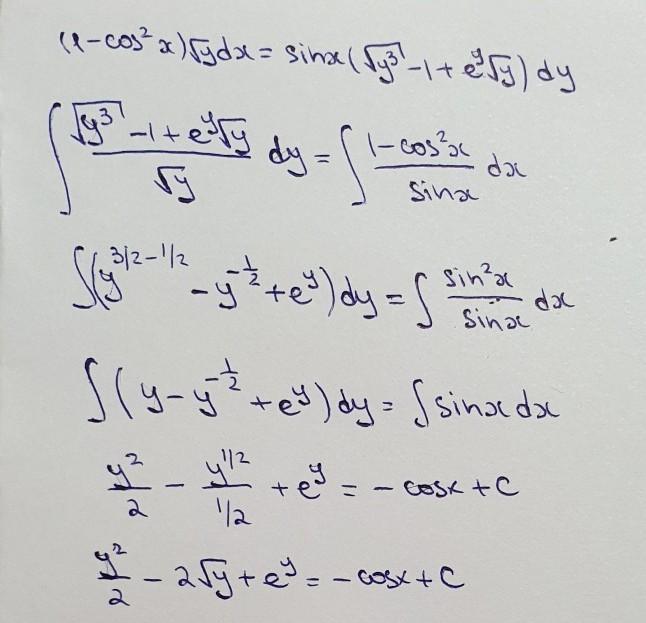 (1-cos²x)√y dx = sinx(√y³ -1+e^y√y) dy
∫ (√y³ -1+e^y√y)/√y dy = ∫ (1-cos²x)/sinx dx
∫(y^(3/2-1/2) - y^(-1/2) + e^y) dy = ∫ sin²x/sinx dx
∫(y - y^(-1/2) + e^y) dy = ∫ sinx dx
y²/2 - y^(1/2)/(1/2) + e^y = - cosx + C
y²/2 - 2√y + e^y = - cosx + C